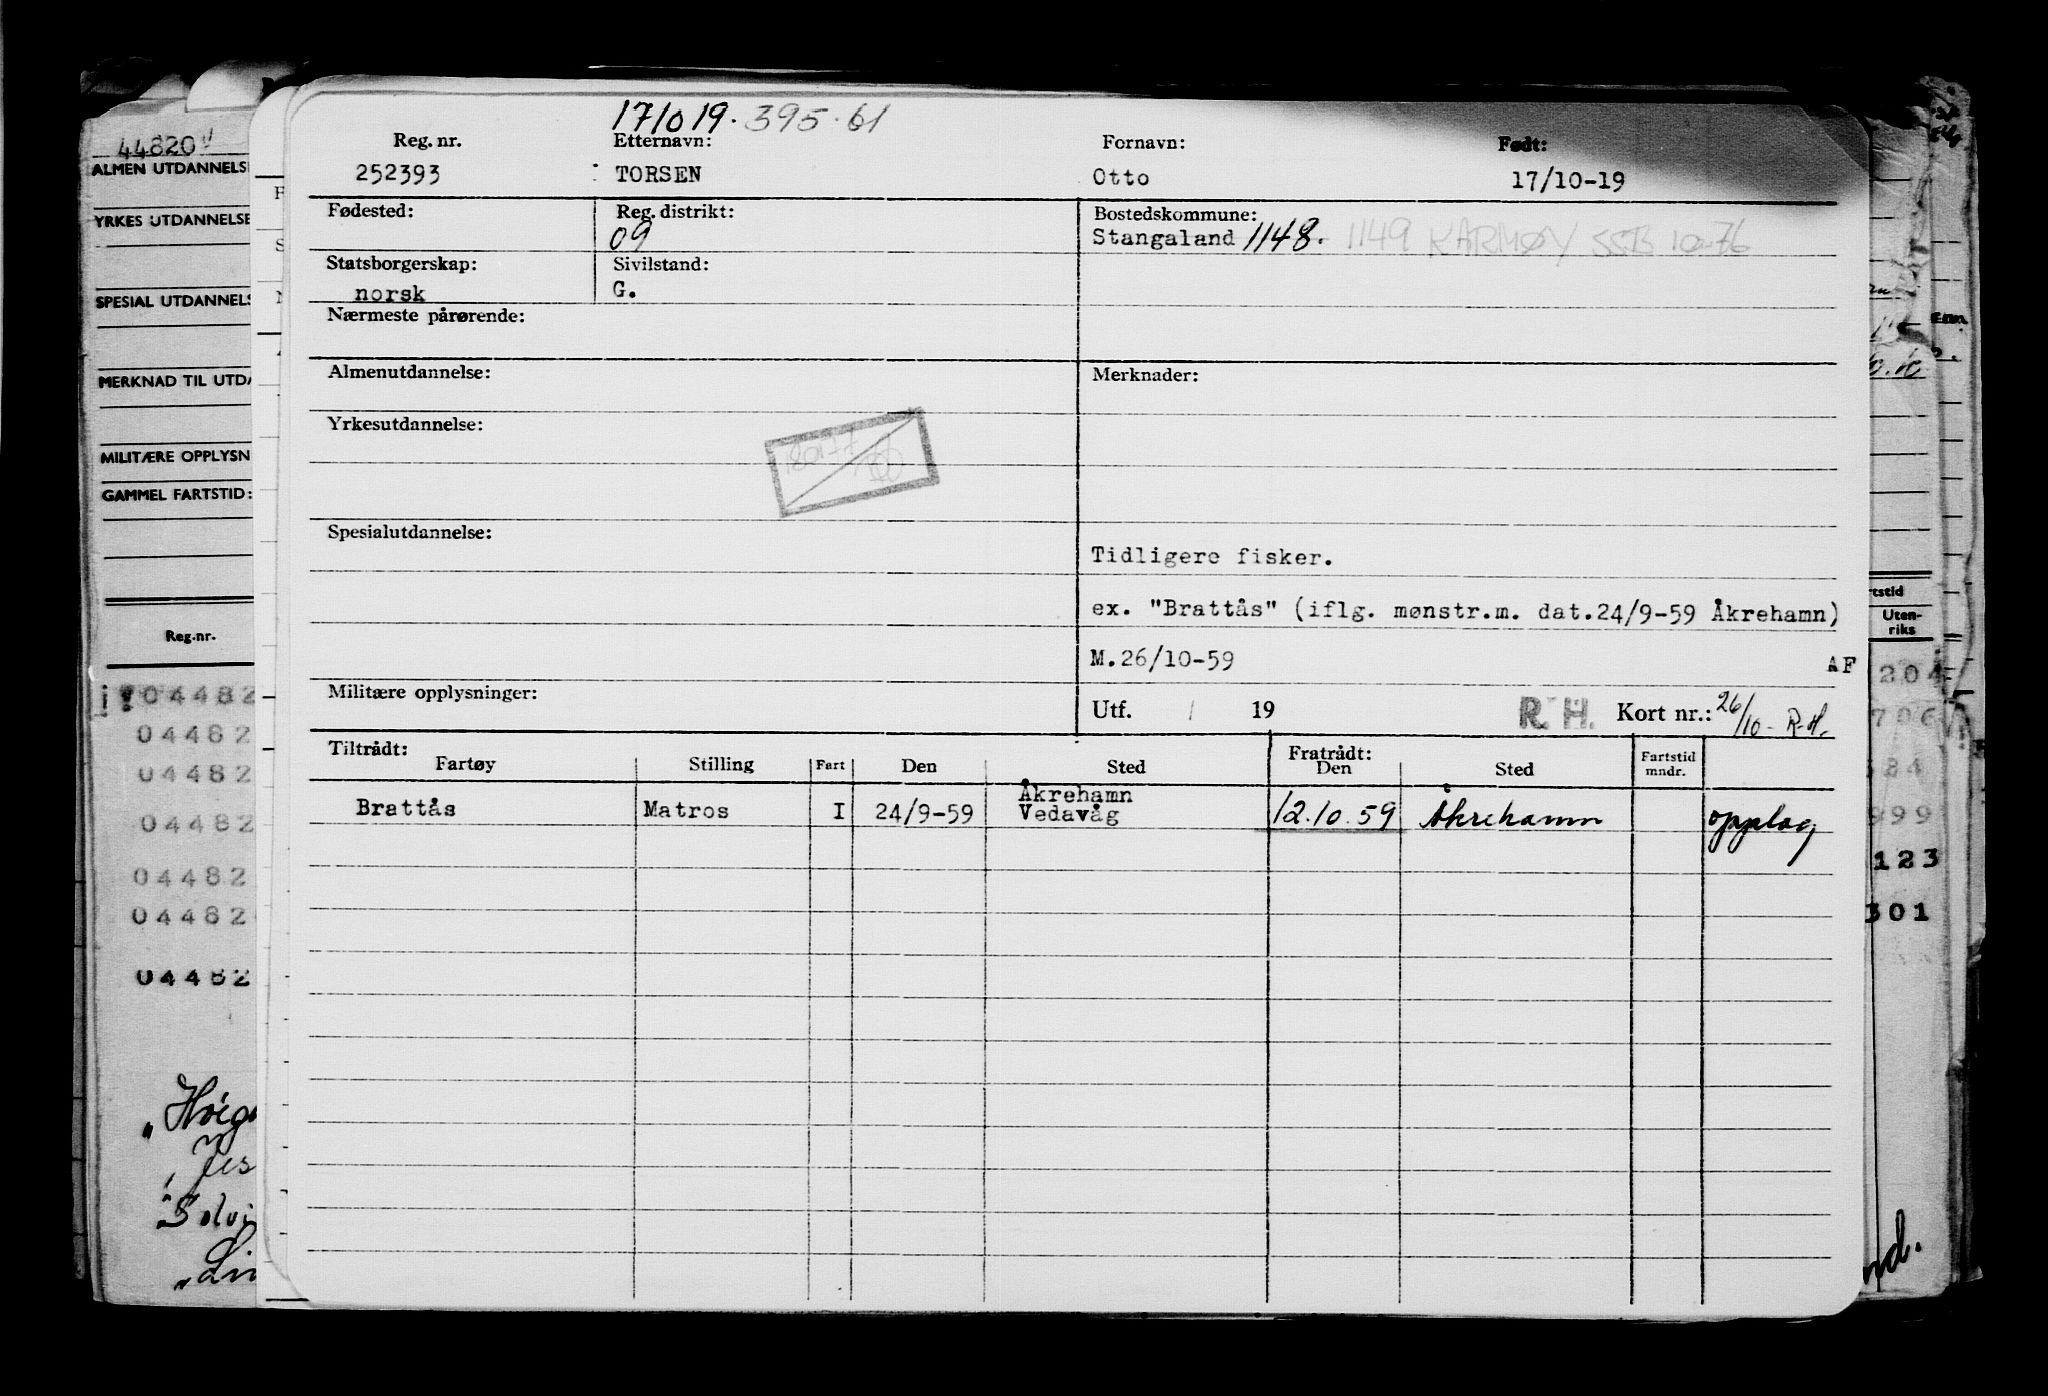 171019. 395.61
Reg. nr. Etternavn: Fornavn: Født:
252393 TORSEN Otto 17/10-19
Fødested: Reg. distrikt: Bostedskommune:
09 Stangaland 1148. 1149 KARMØY SSB 10-76
Statsborgerskap: Sivilstand:
norsk G.
Nærmeste pårørende:
Almenutdannelse: Merknader:
Yrkesutdannelse:
Spesialutdannelse:
Tidligere fisker.
ex. "Brattås" (iflg. mønstr.m. dat.24/9-59 Åkrehamn)
M.26/10-59 AF
Militære opplysninger: Utf. / 19 R.H. Kort nr.: 26/10- R-H.
Tiltrådt: Fratrådt:
Fartøy Stilling Fart Den Sted Den Sted Fartstid mndr.
Brattås Matros I 24/9-59 Åkrehamn Vedavåg 12.10.59 Åkrehamn opplag
44820
ALMEN UTDANNELSE
YRKES UTDANNELSE
SPESIAL UTDANNELS
MERKNAD TIL UTDA
MILITÆRE OPPLYSN
GAMMEL FARTSTID:
Reg.nr.
04482
04482
04482
04482
04482
04482
04482
rtstid
Uten-
riks
204
706
999
123
301